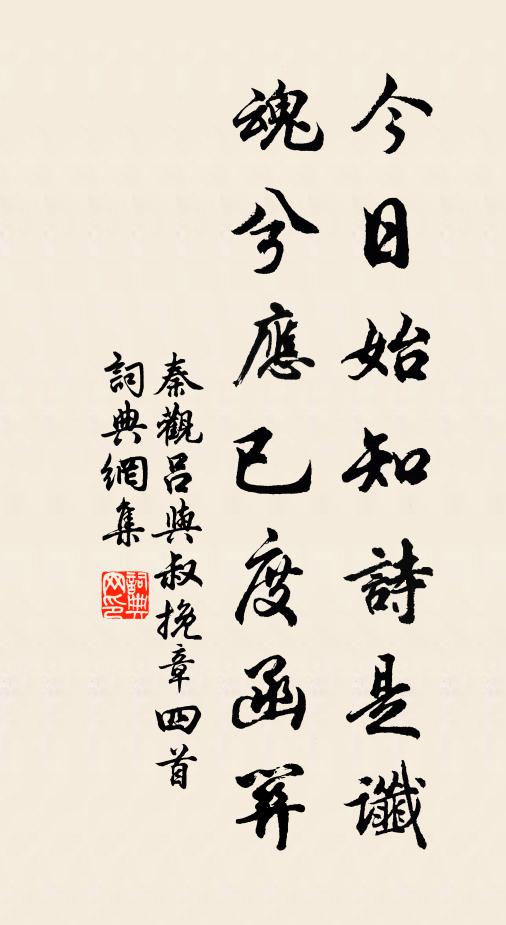 今日始知詩是讖
魂兮應已度函關
秦觀呂與叔挽章四首
詞典網集
詞典網印